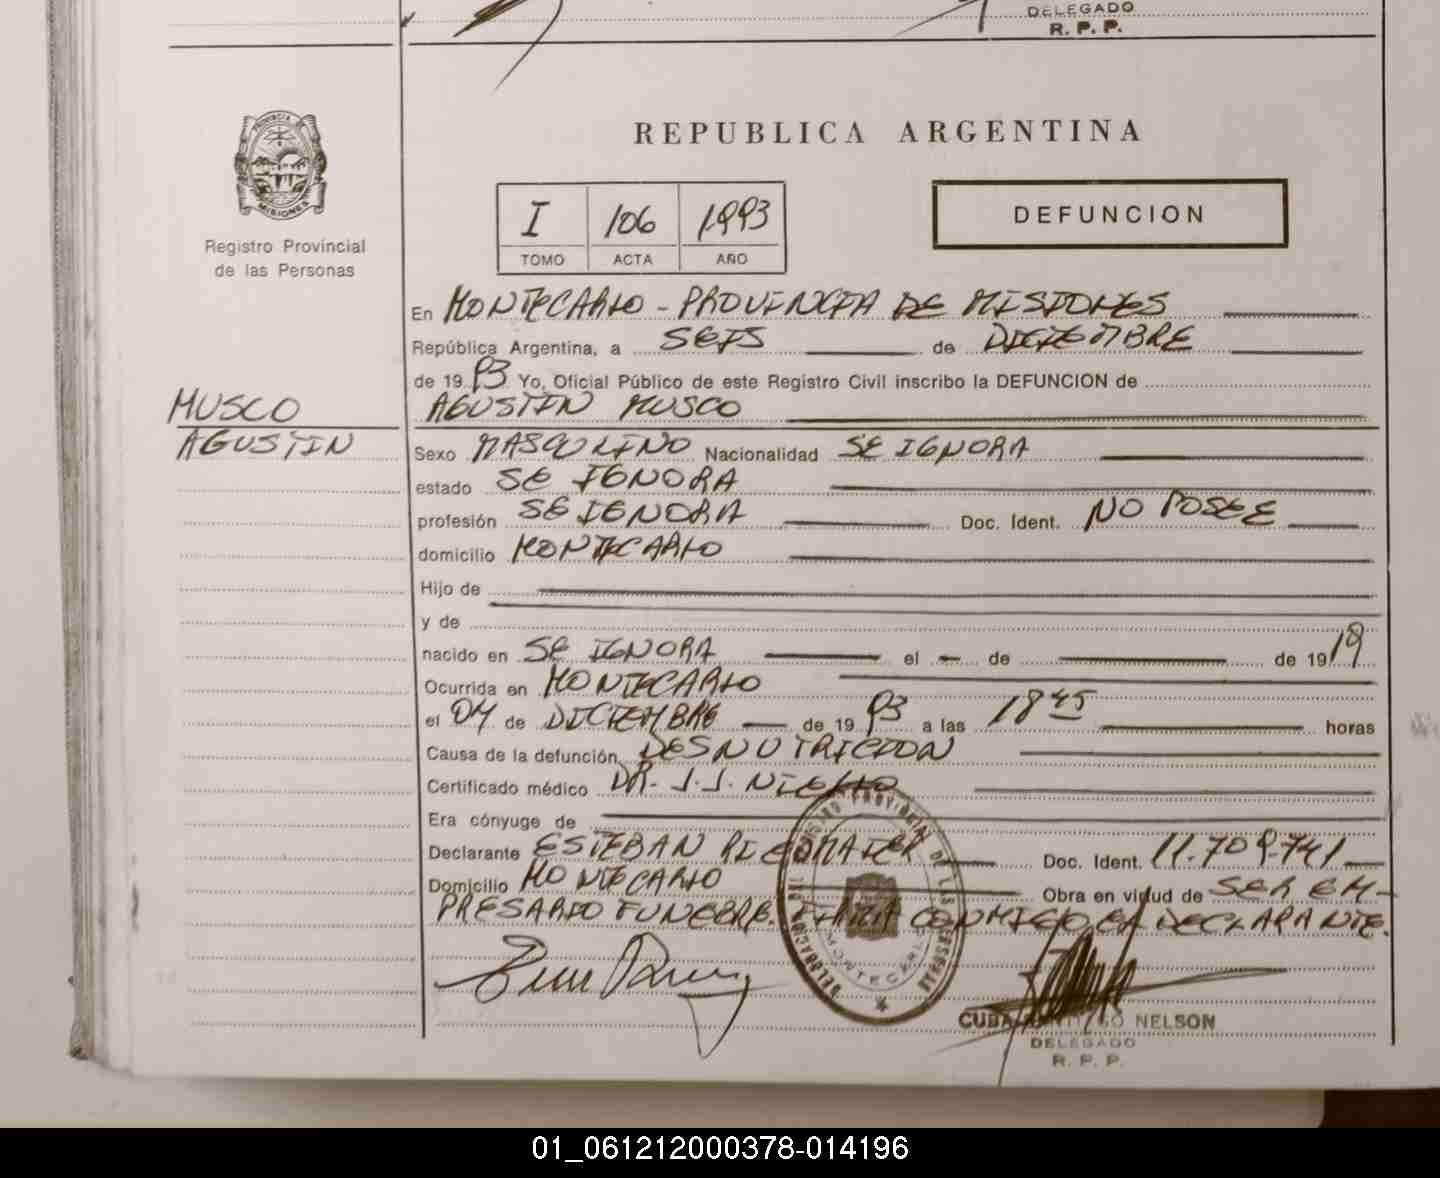 DELEGADO
R. P. P.
PROVINCIA DE
MISIONES
Registro Provincial
de las Personas
REPUBLICA ARGENTINA
I 106 1993
TOMO ACTA AÑO
DEFUNCION
En MONTECARLO - PROVINCIA DE MISIONES
República Argentina, a SEIS de DICIEMBRE
de 19 93 Yo, Oficial Público de este Registro Civil inscribo la DEFUNCION de
MUSCO
AGUSTIN
AGUSTIN MUSCO
Sexo MASCULINO Nacionalidad SE IGNORA
estado SE IGNORA
profesión SE IGNORA Doc. Ident. NO POSEE
domicilio MONTECARLO
Hijo de
y de
nacido en SE IGNORA el - de de 19 19
Ocurrida en MONTECARLO
el 04 de DICIEMBRE de 19 93 a las 18 45 horas
Causa de la defunción DESNUTRICION
Certificado médico DR. J.J.
Era cónyuge de
Declarante ESTEBAN Doc. Ident. 11.709.741
Domicilio MONTECARLO Obra en virtud de SER EM-
PRESARIO FUNEBRE. FIRMA CONMIGO EL DECLARANTE.
DELEGACION DEL REGISTRO PROVINCIAL DE LAS PERSONAS
MONTECARLO
CUBA SANTIAGO NELSON
DELEGADO
R. P. P.
01_061212000378-014196